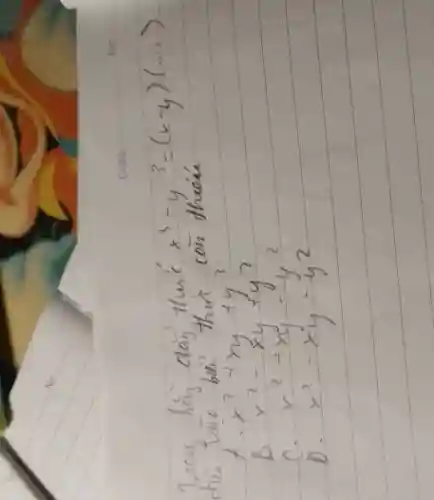 Trong hằng đẳng thức x³ - y³ = (x - y)(...)
điền vào biểu thức còn thiếu
A. x² + xy + y²
B. x² - xy + y²
C. x² + xy - y²
D. x² - xy - y²